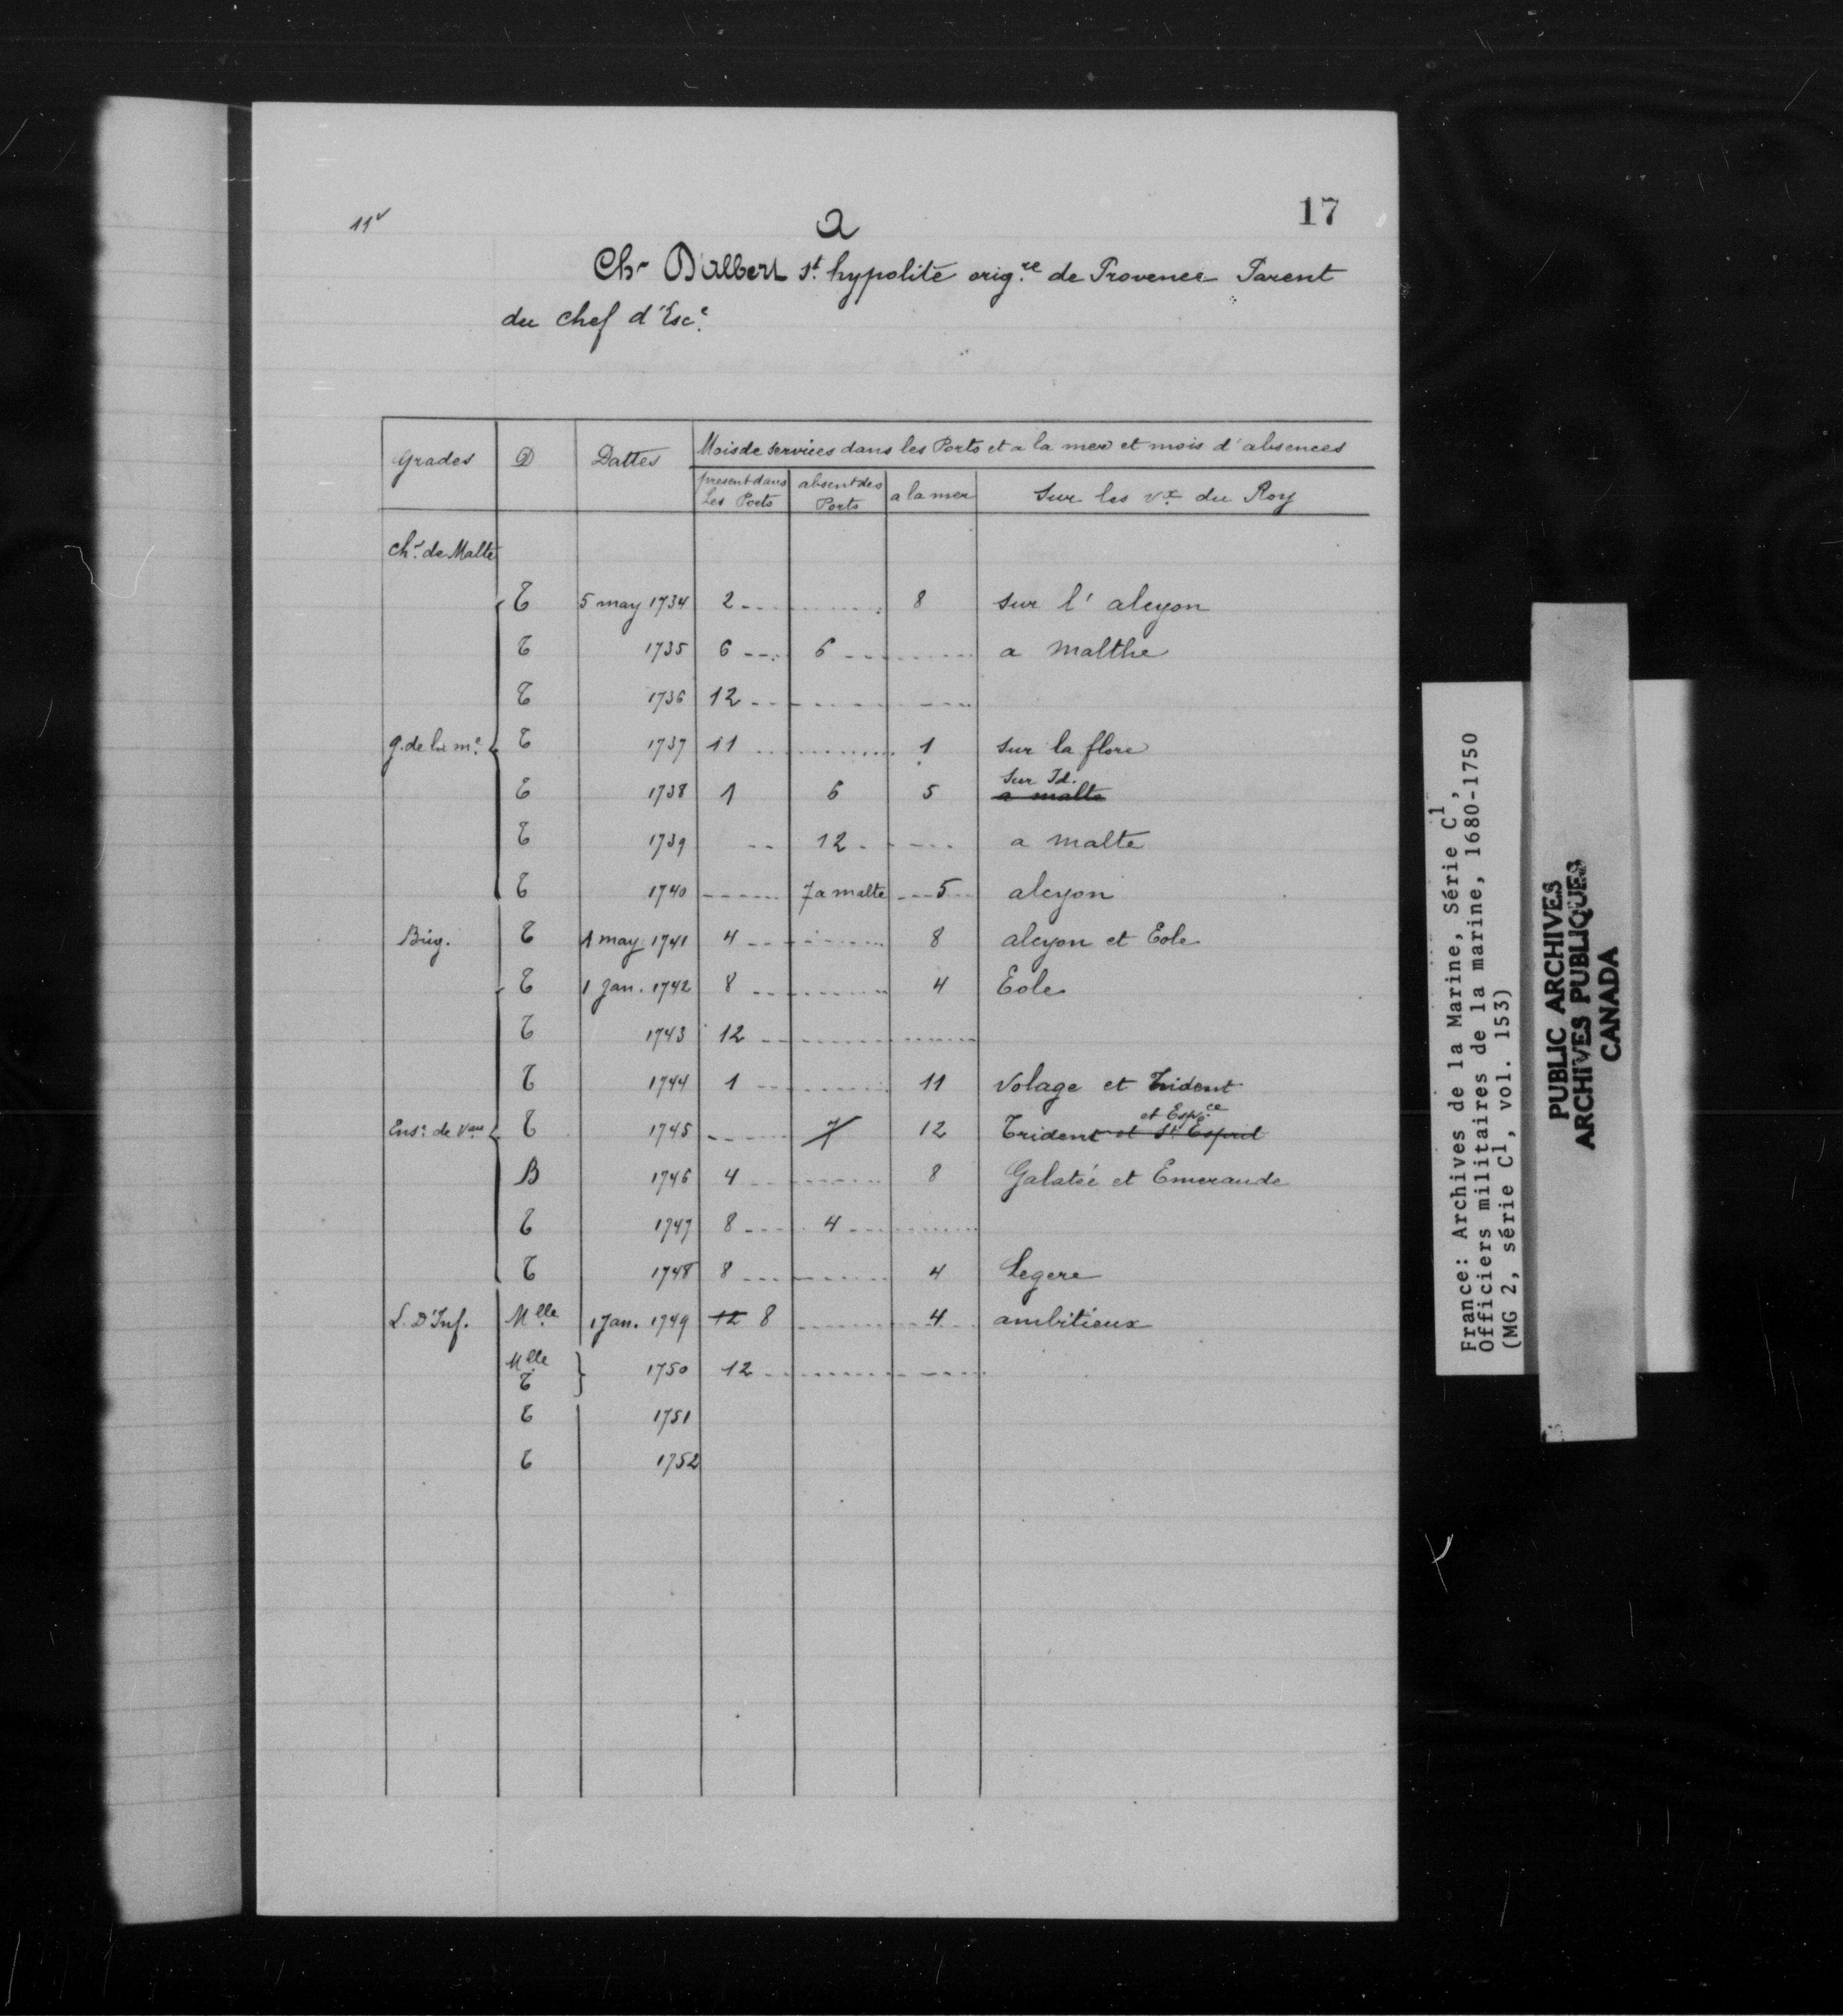 11v
17
a
Chr Dalbert st. hypolite orig.re de Provence Parent
du chef d'Esc.e
Grades D Dattes Mois de services dans les Ports et a la mer et mois d'absences
present dans les Ports absent des Ports a la mer Sur les vx. du Roy
Chr. de Malte
T 5 may 1734 2 8 sur l'alcyon
T 1735 6 6 a malthe
T 1736 12
g. de la me. T 1737 11 1 sur la flore
T 1738 1 6 5 a malte Sur Id.
T 1739 12 a malte
T 1740 7 a malte 5 alcyon
Brig. T 1 may 1741 4 8 alcyon et Eole
T 1 Jan. 1742 8 4 Eole
T 1743 12
T 1744 1 11 Volage et Trident
Ens. de Vau T 1745 7 12 Trident et St Esprit et Espce.
B 1746 4 8 Galatée et Emeraude
T 1747 8 4
T 1748 8 4 Legere
L. D'Inf. Mlle 1 Jan. 1749 12 8 4 ambitieux
Mlle T 1750 12
T 1751
T 1752
France: Archives de la Marine, Série C1,
Officiers militaires de la marine, 1680-1750
(MG 2, série C1, vol. 153)
PUBLIC ARCHIVES
ARCHIVES PUBLIQUES
CANADA